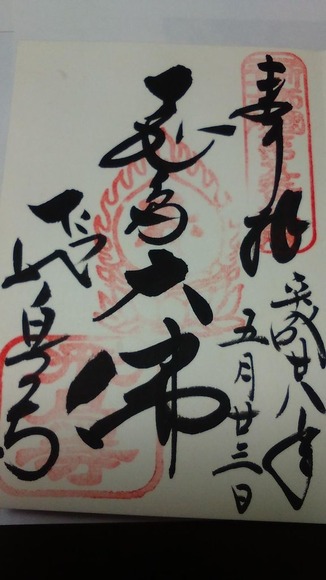 奉拝
平成廿八年
五月廿三日
飛鳥大佛
飛鳥寺